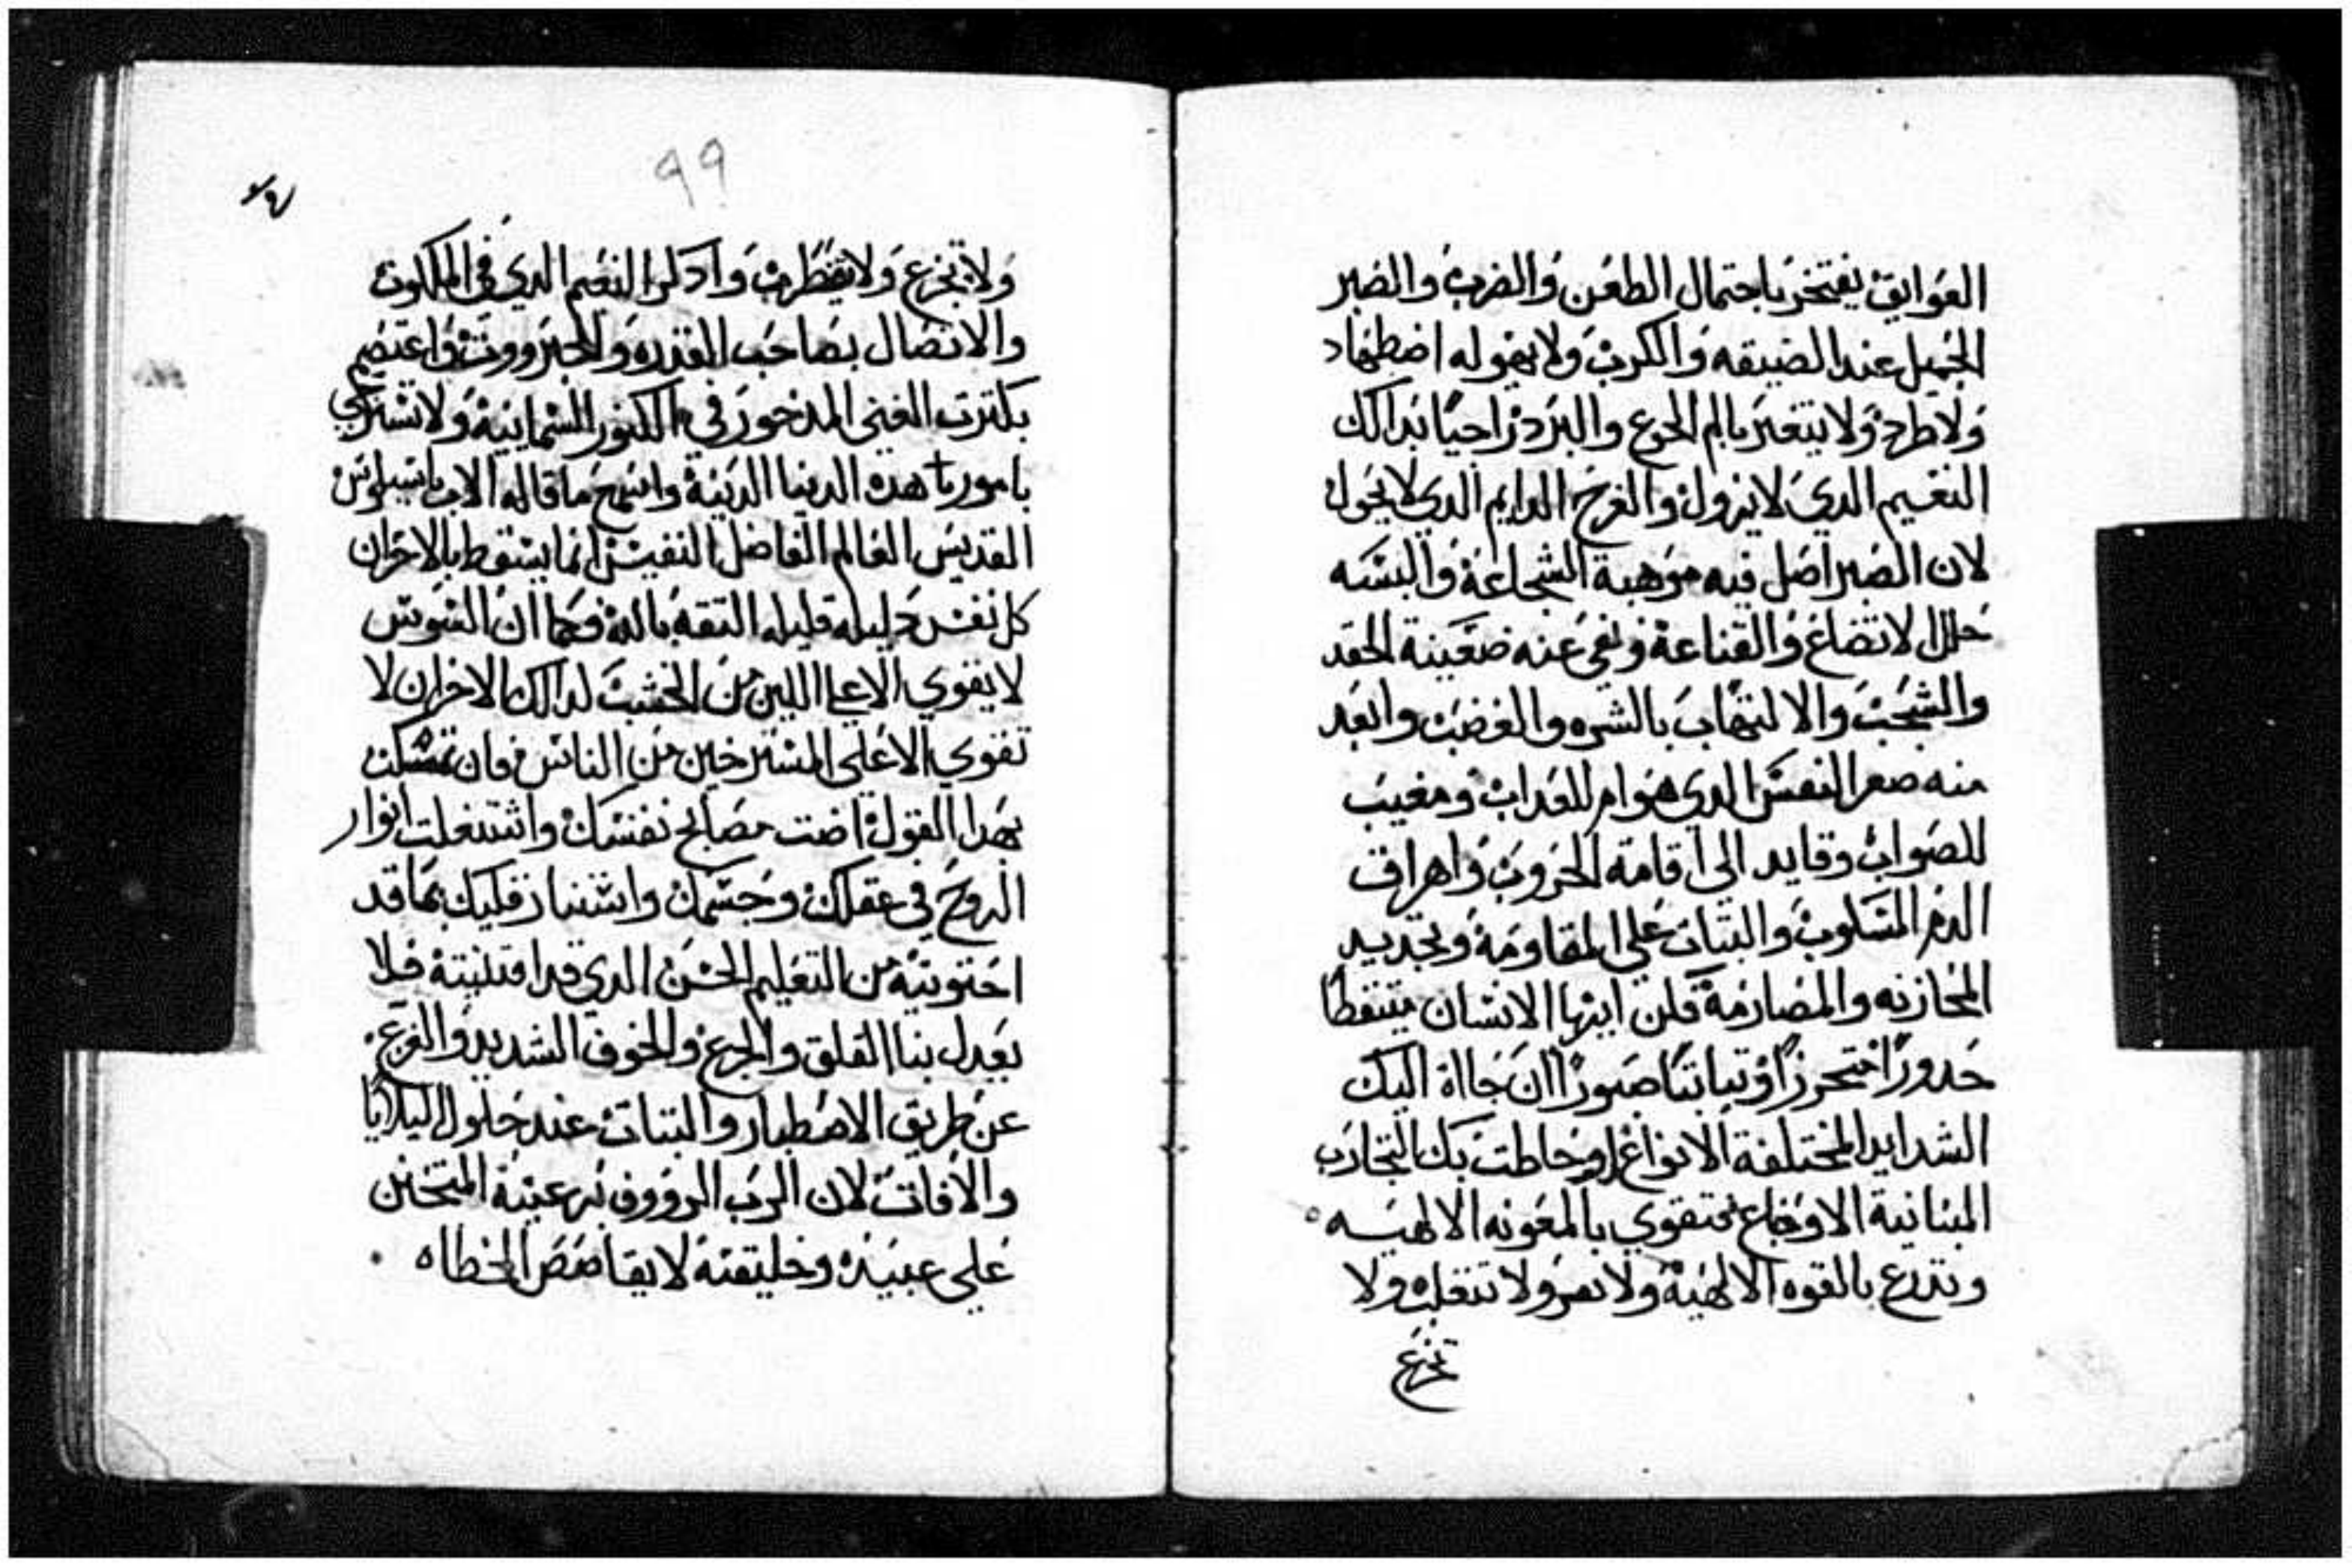 العوايق يفتخر باحتمال الطعن والضرب والصبر
الجميل عند الضيقه والكرب ولا يهوله اضطهاد
ولا طرد ولا يتغير بالم الجوع والبرد راجيا بدالك
النعيم الدي لا يزول والفرح الدايم الدي لا يحول
لان الصبر اصل فيه موهبة الشجاعة والبسه
حلل لاتضاع والقناعة ونفي عنه ضعينة الحقد
والشجب والالتهاب بالشره والغضب وابعد
منه صغر النفس الدي هو ام للعداب ومغيب
للصواب وقايد الي اقامة الحروب واهراق
الدم المسلوب والتبات علي المقاومة وتجديد
المحازنه والمصارمة فلن ايها الانسان متيقظا
حدورا محترزا وتباتتا صبورا ان جااة اليك
الشدايد المختلفة الانواع او حاطت بك التجارب
المتبانية الاوجاع تتقوي بالمعونه الالهيه
وتدرع بالقوه الالهية ولا تمر ولا تتقلب ولا
تجزع
٩٩
ولا تجزع ولا تضطرب وادكر النعيم الدي في الملكوت
والاتصال بصاحب القدره والجبرووت واعتصم
بكترت الغني المدخور في الكنوز السمايية ولا تشتري
بامور هده الدنيا الدنية واسمع ما قاله الاب باسيليوس
القديس العالم الفاضل النفيس انما يستقط بالاحزان
كل نفس دليله قليله التقه بالله فكما ان السوس
لا يقوي الا علي اللين من الخشب لدالك الاحزان لا
تقوي الا علي المسترخين من الناس فان تمسكت
بهدا القول اضت مصابح نفسك واشتعلت انوار
الروح في عقلك وجسمك واستنار قلبك بما قد
احتويته من التعليم الحسن الدي قد اقتنيته فلا
يعدل بنا القلق والجزع والخوف الشديد والفزع
عن طريق الاصطبار والتبات عند حلول البلايا
والافات لان الرب الرووف برعيته المتحنن
علي عبيده وخليقته لا يقاصص الخطاه